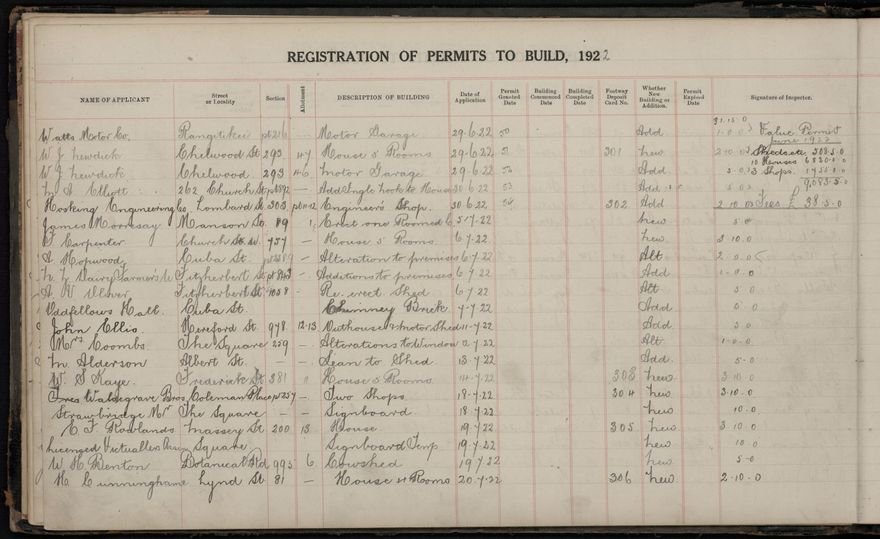 REGISTRATION OF PERMITS TO BUILD, 1922
NAME OF APPLICANT Street or Locality Section Allotment DESCRIPTION OF BUILDING Date of Application Permit Granted Date Building Commenced Date Building Completed Date Footway Deposit Card No. Whether New Building or Addition. Permit Expired Date Signature of Inspector.
31.15.0
Watts Motor Co. Rangitikei pt 216 — Motor Garage 29-6-22 Add 1-0-0 Value Permit
June 1922
W J Newdick Chelwood St 293 47 House 5 Rooms 29.6.22 301 New 2-10-0 Sheds etc 303-5-0
10 Houses
W J Newdick Chelwood 293 46 Motor Garage 29.6.22 Add 5-0 3 Shops.
Elliott 262 Church St — Add Ingle nook to House 30 6 22 Add 5 0 9,083-5-0
Hosking Engineering Co Lombard St 303 pt 11-12 Engineer's Shop. 30 6 22 302 Add 2 10 0 Fees £ 38-5-0
James Manson St 89 Erect one Roomed 5-7-22 New 5 0
Carpenter Church St. W. 757 — House 5 Rooms 6 7 22 New 3 10.0
A Hopwood Cuba St. — Alteration to premises 6 7 22 Alt 2.0.0
Dairy Farmer's Fitzherbert St — Additions to premises 6 7 22 Add 1-0.0
Fitzherbert St 1058 - Re erect Shed 6 7 22 Alt 5 0
Oddfellows Hall Cuba St. Chimney Brick 7-7-22 Add 5 0
John Ellis. Hereford St 978 12-13 Outhouse & Motor Shed 11-7-22 Add 5 0
Mrs Coombs. The Square 259 — Alterations to Window 12-7-22 Alt 1-0-0
Alderson Albert St. — — Lean to Shed 13 7 22 Add. 5-0
W. S Kaye. Frederick St 381 House 5 Rooms 14-7-22 303 New 3-10 0
Walsegrave Bros Coleman Place — Two Shops 18-7-22 304 New 3-10.0
Strawbridge Mr The Square — — Signboard 18 7.22 New 10.0
E. J Rowlands Massey St 200 13 House 19.7.22 305 New 3-10-0
Licensed Victuallers Square Signboard Temp 19 7 22 New 10 0
W. H. Benton Botanical Rd 995 6 Cowshed 19 7 22 New 5-0
Cunninghame Lynd St 81 — House 4 Rooms 20-7-22 306 New 2-10-0